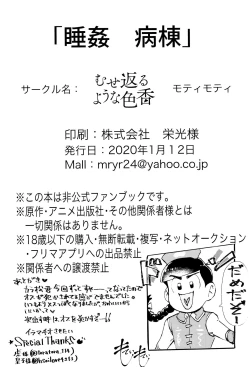 「睡姦　病棟」
サークル名：
むせ返る
ような色香
モティモティ
印刷：株式会社　栄光様
発行日：2020年1月12日
Mail：mryr24@yahoo.co.jp
※この本は非公式ファンブックです。
※原作・アニメ出版社・その他関係者様とは
一切関係はありません。
※18歳以下の購入・無断転載・複写・ネットオークション
・フリマアプリへの出品禁止
※関係者への譲渡禁止
だめだぞー
あとがき
イラマチオさせたい
Special Thanks